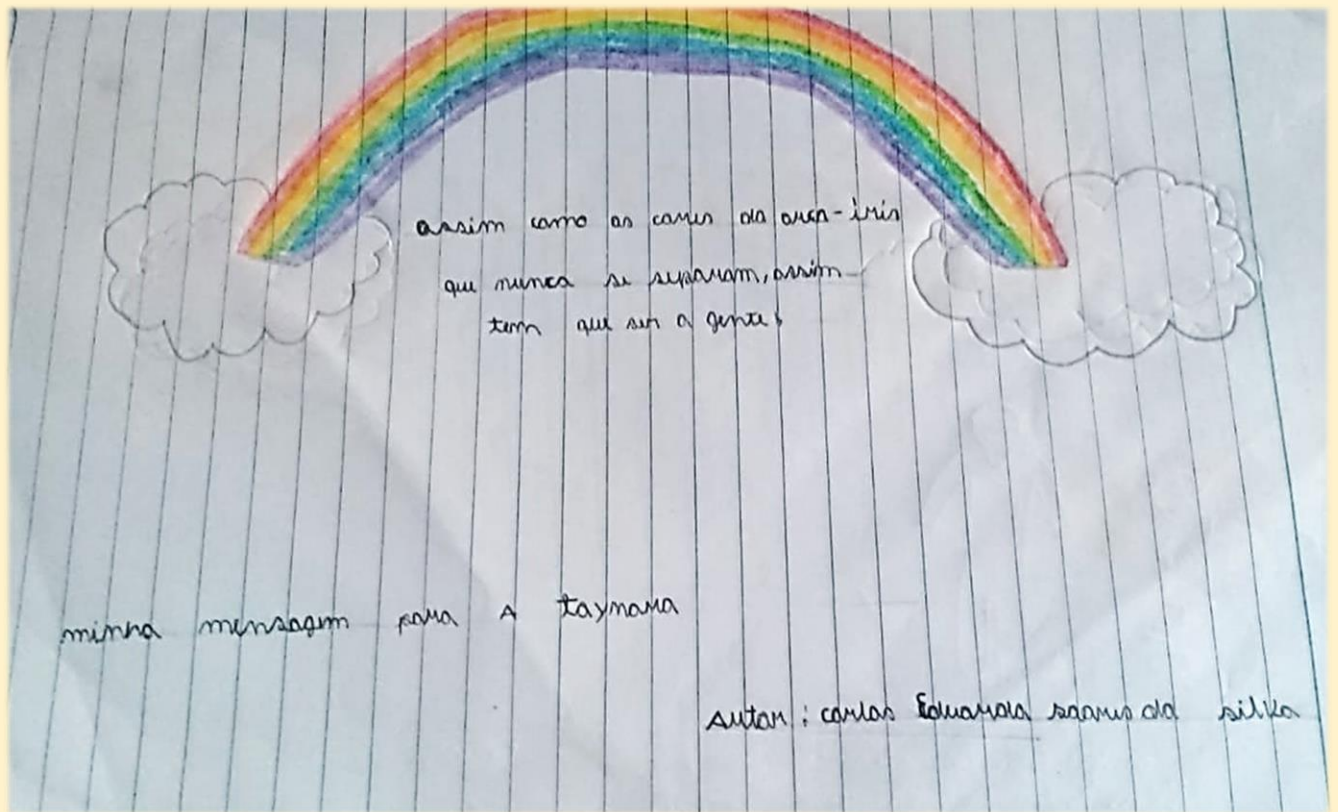 assim como as cores do arco-iris
que nunca se separam, assim
tem que ser a gente!
minha mensagem para A taynara
Autor: carlos Eduardo soares da silva